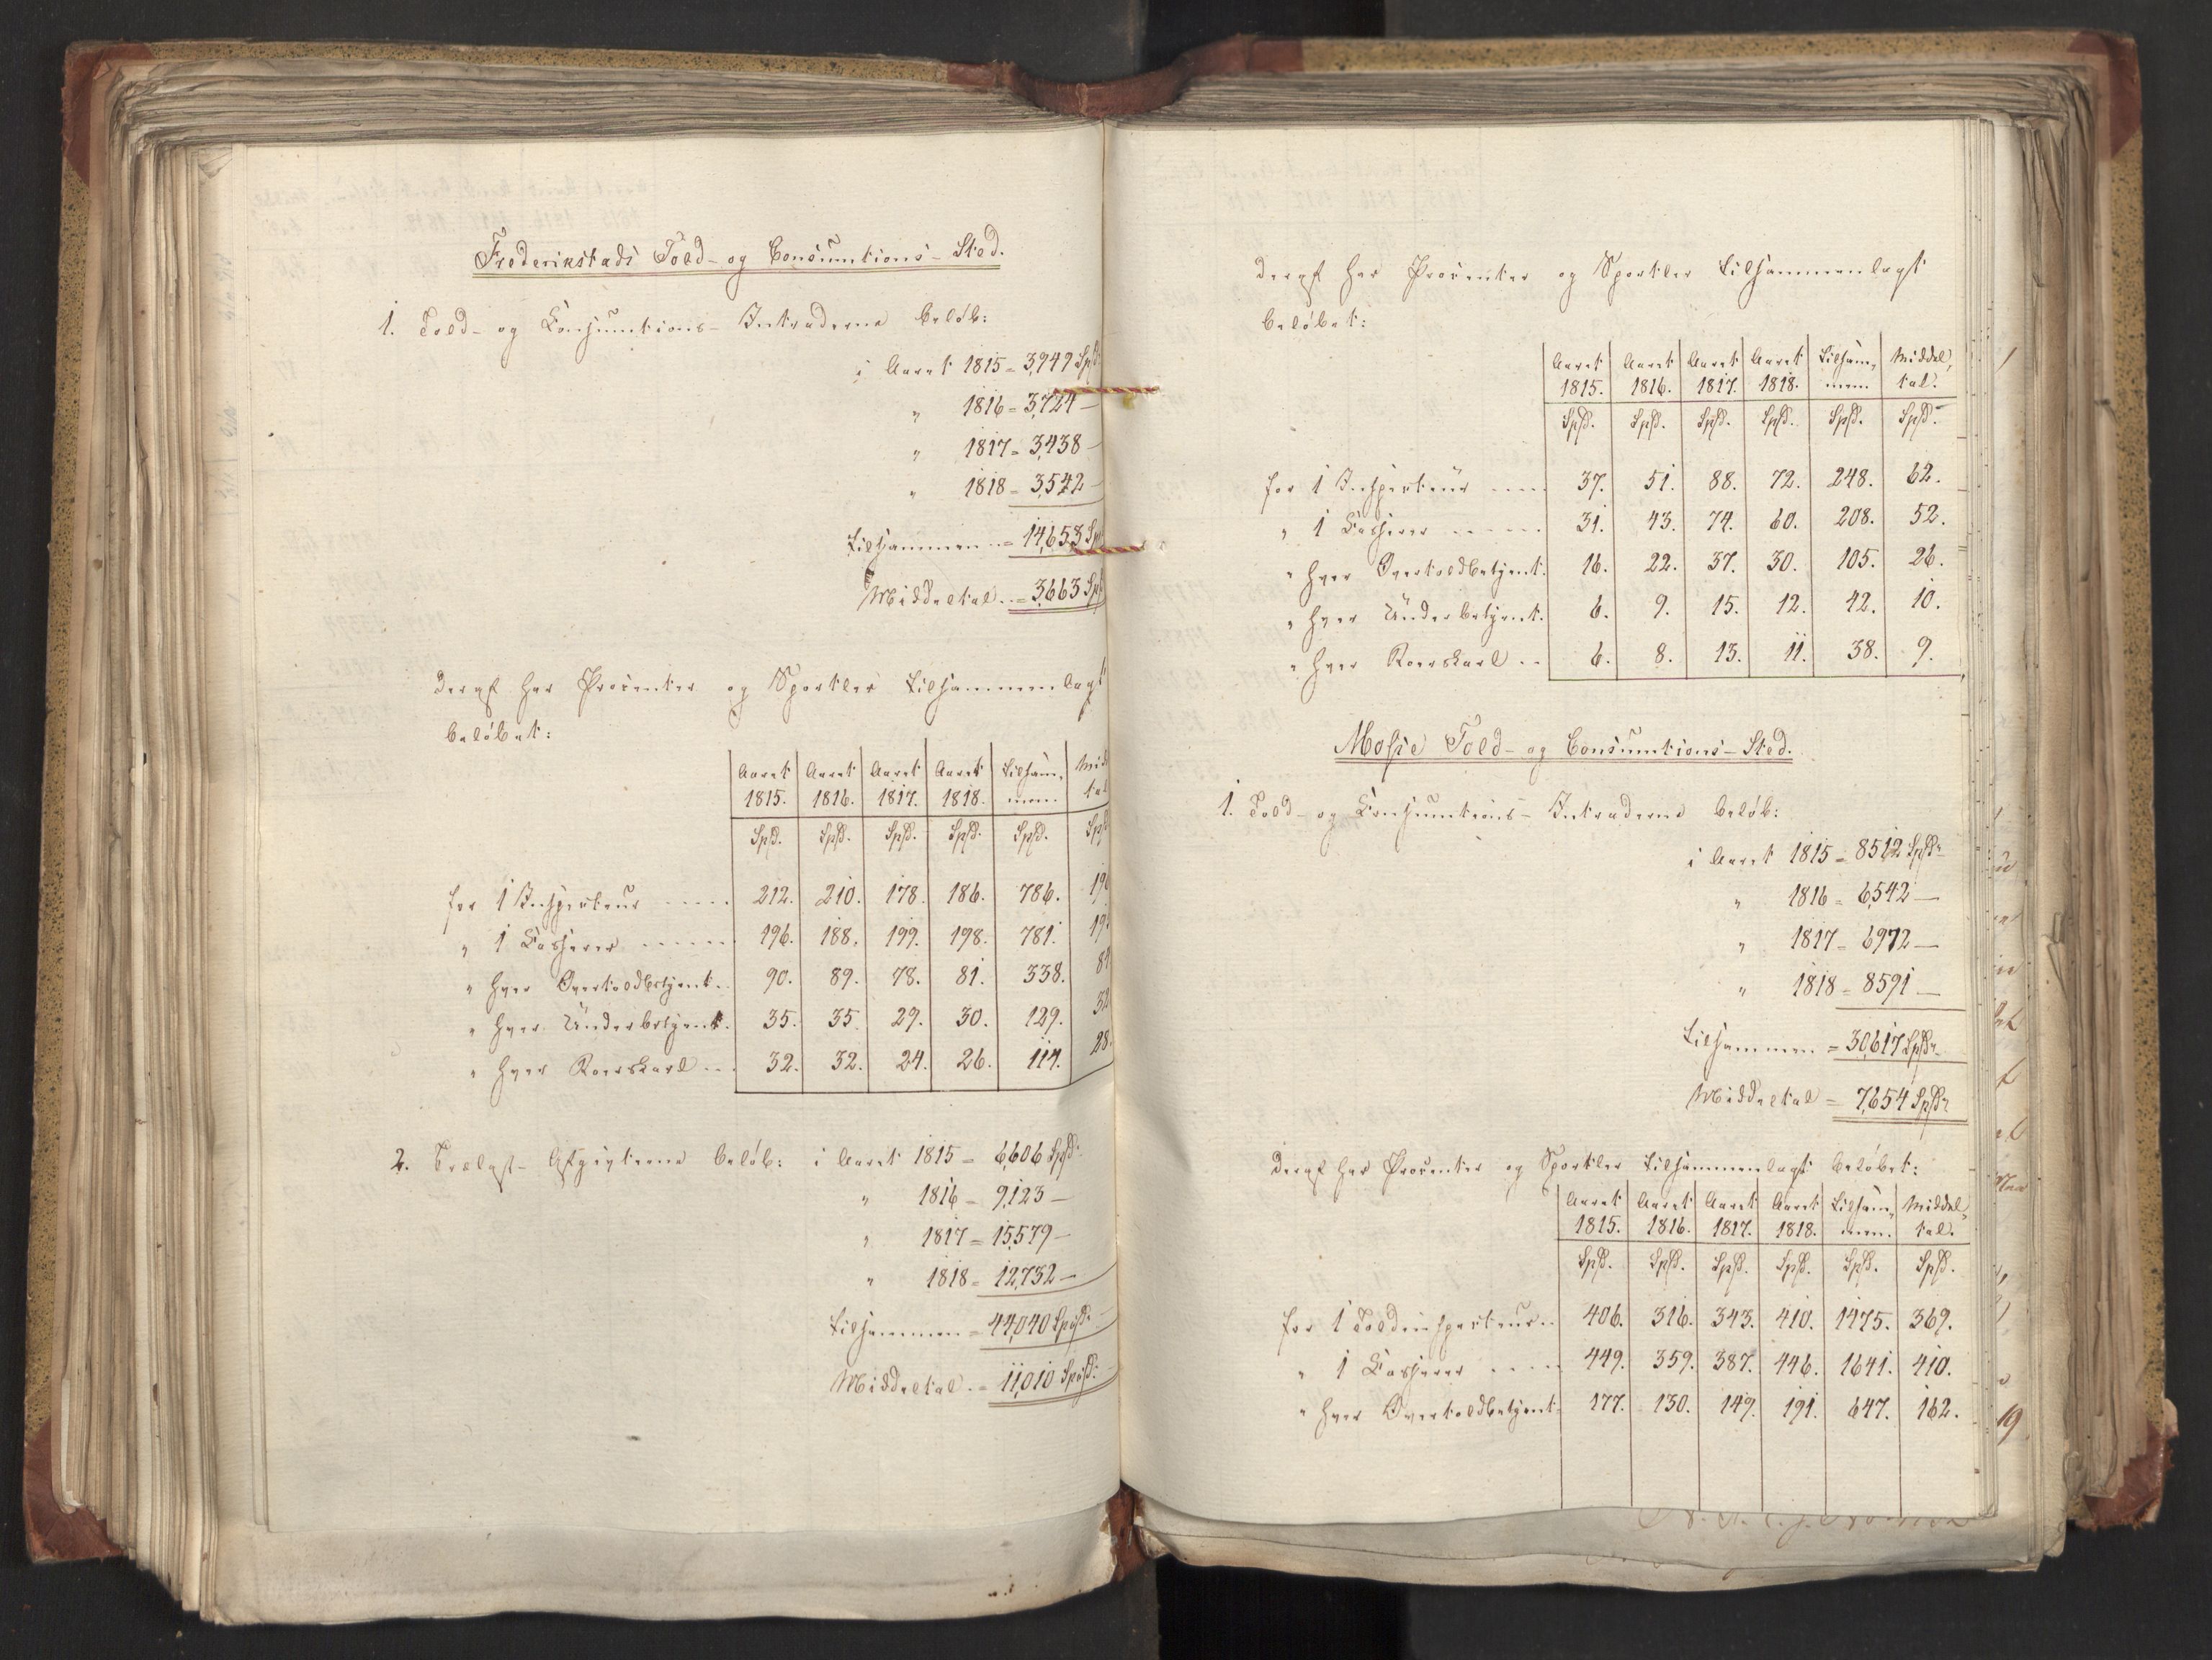 Frederikstads Told- og Consumtions-Sted.
1. Told- og Consumtions-Intraderne beløb:
i Aaret 1815 = 3,949 Spd
" 1816 = 3,724 —
" 1817 = 3,438 —
" 1818 = 3,542 —
Tilsammen = 14,653 Sp
Middeltal = 3,663 Spd
Deraf har Procenter og Sportler tilsammenlagt
beløbet:
Aaret Aaret Aaret Aaret Tilsam-
1815. 1816. 1817. 1818. men.
Spd. Spd. Spd. Spd. Spd. Spd
for 1 Inspecteur 212. 210. 178. 186. 786.
" 1 Casserer 196. 188. 199. 198. 781.
" hver Overtoldbetjent. 90. 89. 78. 81. 338. 84
" hver Underbetjent. 35. 35. 29. 30. 129. 32
" hver Roerskarl 32. 32. 24. 26. 114. 28.
2. Trælast-Afgivterne beløb: i Aaret 1815 = 6,606 Spd.
" 1816 = 9,123 —
" 1817 = 15,579 —
" 1818 = 12,732 —
Tilsammen = 44,040 Spd.
Middeltal = 11,010 Spd.
Deraf har Procenter og Sportler tilsammenlagt
beløbet:
Aaret Aaret Aaret Aaret Tilsam- Middel-
1815. 1816. 1817. 1818. men. tal.
Spd. Spd. Spd. Spd. Spd. Spd.
for 1 Inspecteur 37. 51. 88. 72. 248. 62.
" 1 Casserer 31. 43. 74. 60. 208. 52.
" hver Overtoldbetjent. 16. 22. 37. 30. 105. 26.
" hver Underbetjent. 6. 9. 15. 12. 42. 10.
" hver Roerskarl 6. 8. 13. 11. 38. 9.
Mosse Told- og Consumtions-Sted.
1. Told- og Consumtions-Intraderne beløb:
i Aaret 1815 = 8512 Spd.
" 1816 = 6,542 —
" 1817 = 6972 —
" 1818 = 8591 —
Tilsammen = 30,617 Spd.
Middeltal = 7,654 Spd.
Deraf har Procenter og Sportler tilsammenlagt beløbet:
Aaret Aaret Aaret Aaret Tilsam- Middel-
1815. 1816. 1817. 1818. men. tal.
Spd. Spd. Spd. Spd. Spd. Spd.
for 1 Toldinspecteur 406. 316. 343. 410. 1475. 369.
" 1 Casserer 449. 359. 387. 446. 1641. 410.
" hver Overtoldbetjent 177. 130. 149. 191. 647. 162.